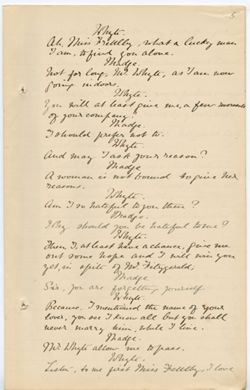 5
Whyte.
Ah, Miss Frettlby, what a lucky man
I am, to find you alone.
Madge.
Not for long, Mr Whyte, as I am now
going indoors.
Whyte.
You will at least give me, a few moments
of your company?
Madge.
I should prefer not to.
Whyte.
And may I ask your reason?
Madge
A woman is not bound to give her
reasons.
Whyte.
Am I so hateful to you then?
Madge.
Why should you be hateful to me?
Whyte.
Then I, at least have a chance, give me
but some hope and I will win you
yet, in spite of Mr. Fitzgerald.
Madge
Sir, you are forgetting yourself
Whyte.
Because I mentioned the name of your
lover, you see I know all but you shall
never marry him, while I live.
Madge.
Mr. Whyte allow me to pass.
Whyte.
Listen, to me first Miss Frettlby, I love